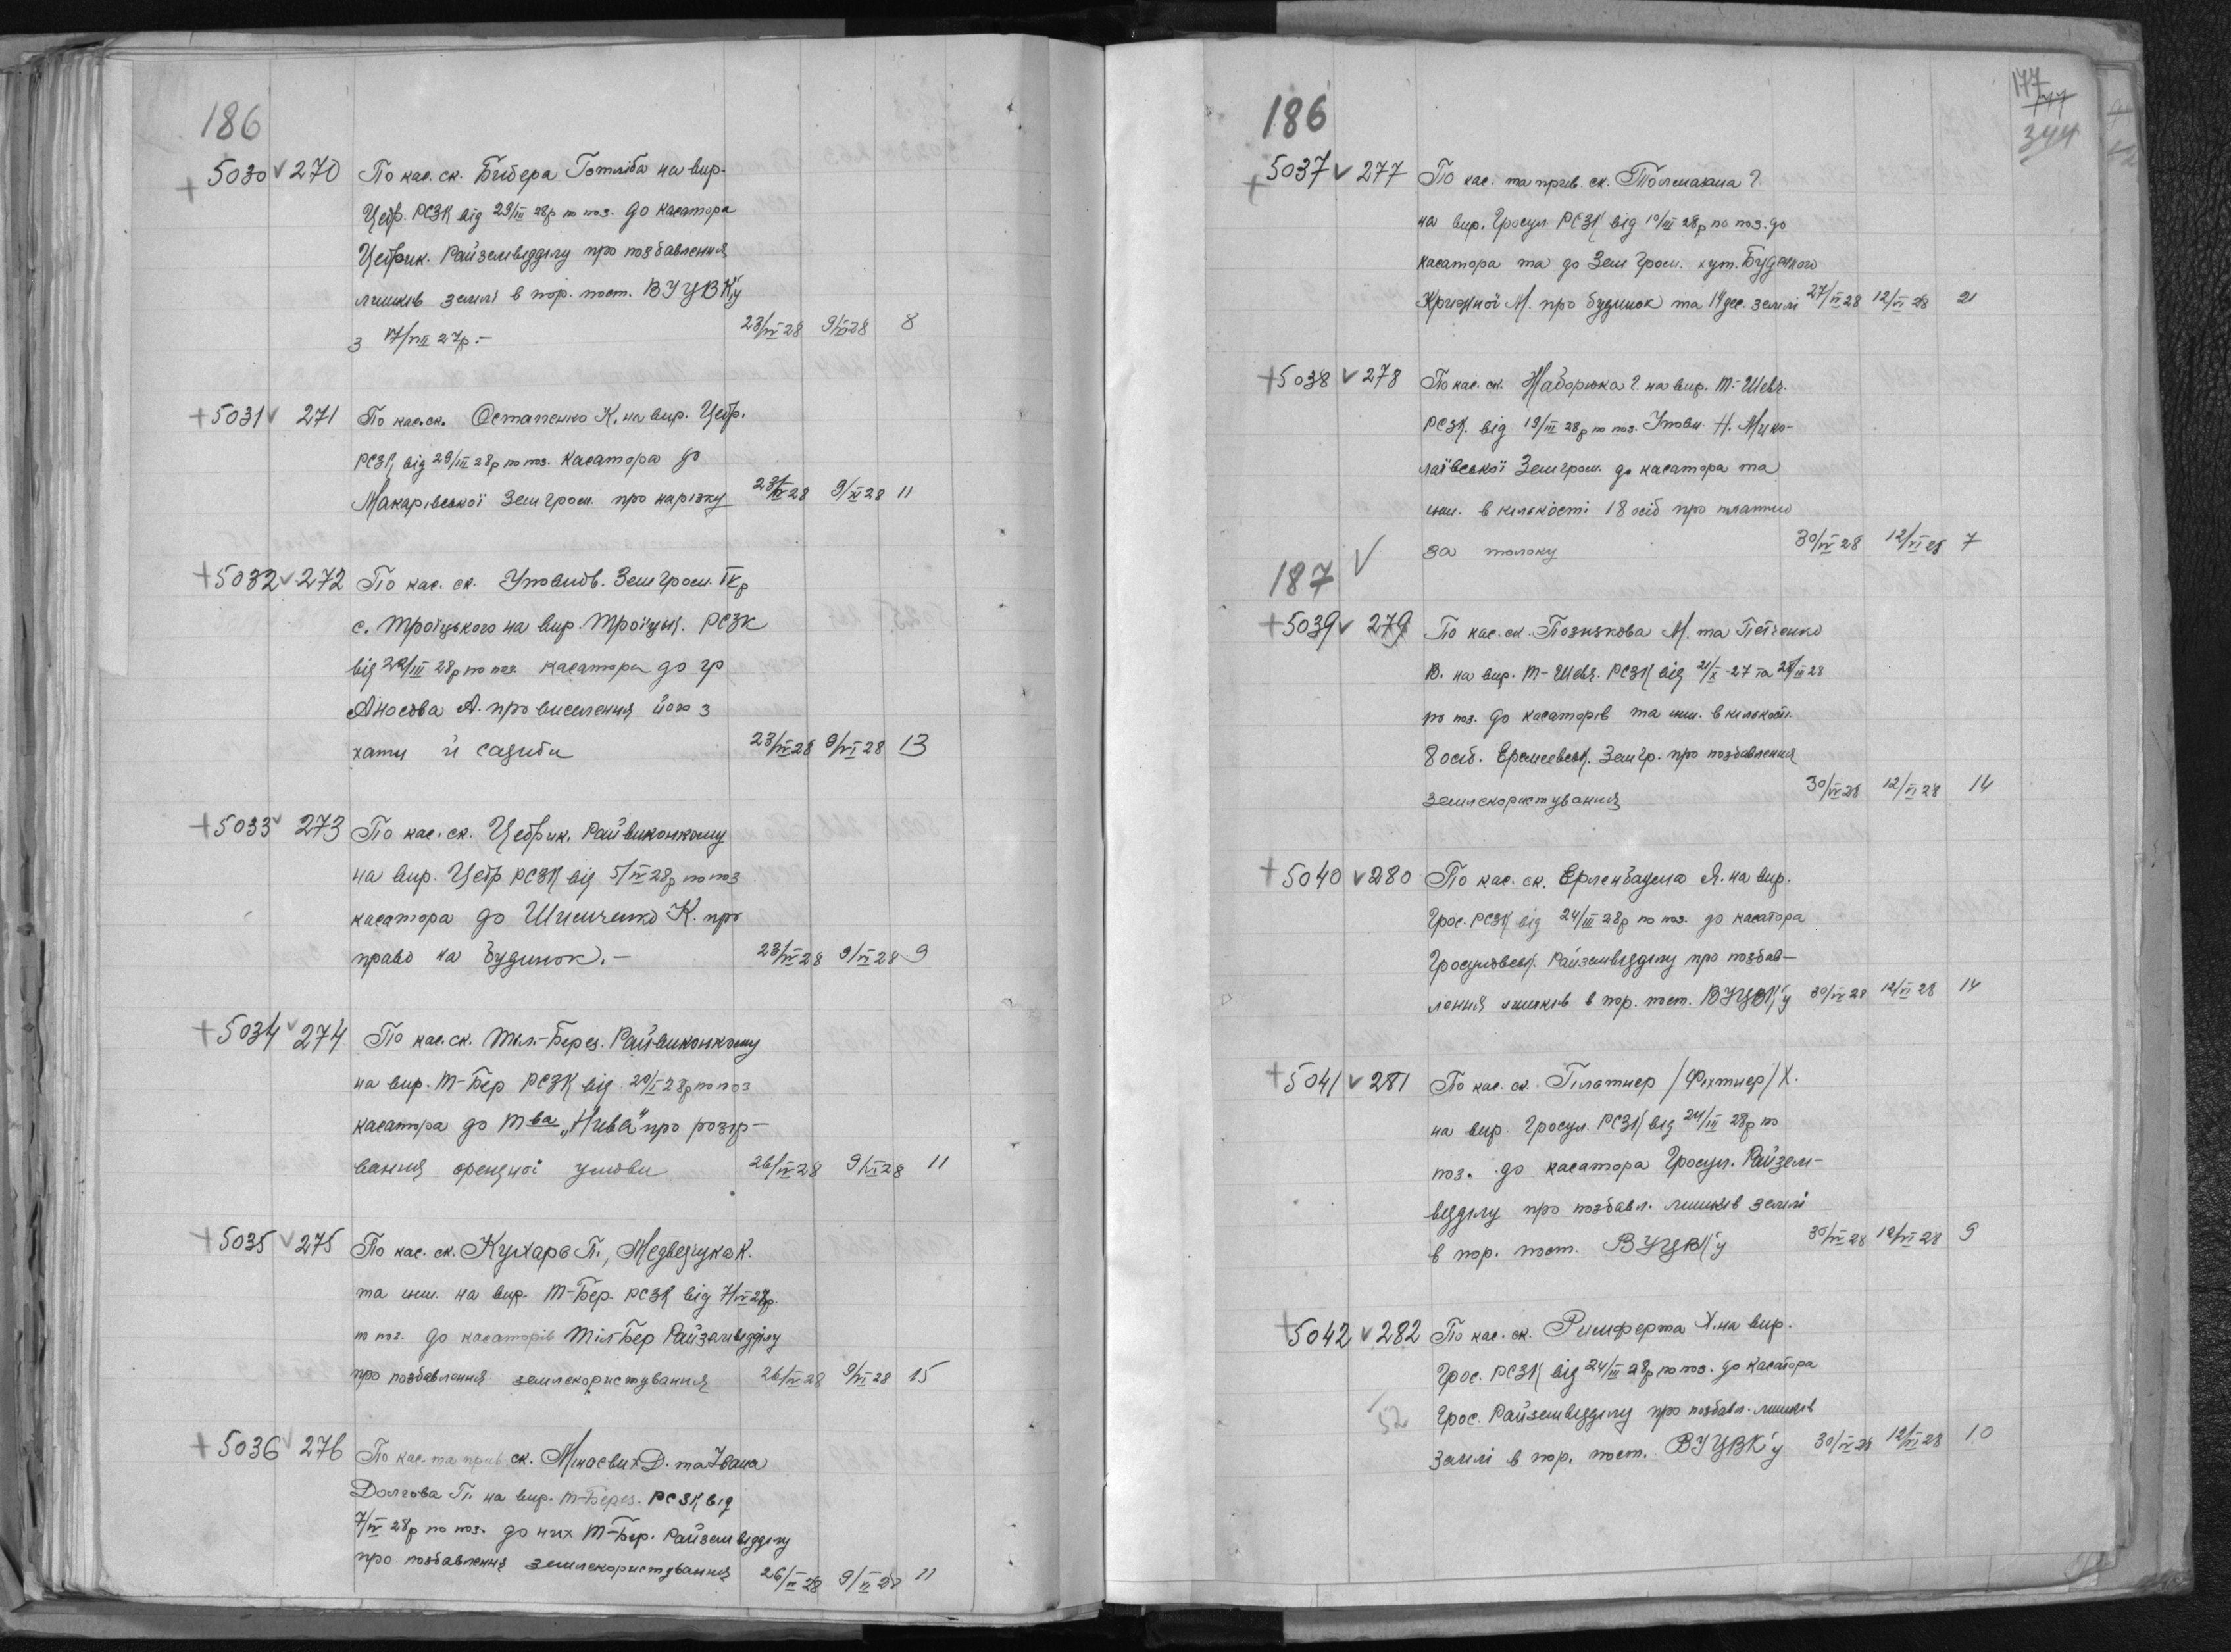 186
+ 5030 v 270 По кас. ск. Бибера Готліба на вир.
Цебр. РСЗК від 29/III 28р по поз. до касатора
Цебрик. Райземвідділу про позбавлення
лишків землі в пор. пост. ВУЦВК'у
з 17/VIII 27р.– 23/IV 28 9/VI 28 8
+ 5031 v 271 По кас. ск. Остапенко К. на вир. Цебр.
РСЗК від 29/III 28р по поз. касатора до
Макарівської Земгром. про нарізку 23/IV 28 9/VI 28 11
+ 5032 v 272 По кас. ск. Уповнов. Земгром. IVр
с. Троїцького на вир. Троїцьк. РСЗК
від 22/III 28р по поз. касатора до гр
Аносова А. про виселення його з
хати й садиби 23/IV 28 9/VI 28 13
+ 5033 v 273 По кас. ск. Цебрик. Райвиконкому
на вир. Цебр РСЗК від 5/IV 28р по поз
касатора до Шинченко К. про
право на будинок.– 23/IV 28 9/VI 28 9
+ 5034 v 274 По кас. ск. Тіл.-Берез. Райвиконкому
на вир. Т-Бер РСЗК від 20/I 28р по поз
касатора до Т-ва „Нива" про розір-
вання орендної умови 26/IV 28 9/VI 28 11
+ 5035 v 275 По кас. ск. Кухаря П., Медведчука К.
та инш. на вир. Т-Бер. РСЗК від 7/IV 28р.
по поз. до касаторів Тіл Бер Райземвідділу
про позбавлення землекористування 26/IV 28 9/VI 28 15
+ 5036 v 276 По кас. та прив ск. Минаєвих Д. та Івана
Долгова П. на вир. Т-Берез. РСЗК від
7/IV 28р по поз. до них Т-Бер. Райземвідділу
про позбавлення землекористування 26/IV 28 9/VI 28 11
177
344
186
+ 5037 v 277 По кас. та прив. ск. Толмазана Г.
на вир. Гросул. РСЗК від 10/III 28р по поз. до
касатора та до Зем Гром. хут. Буденого
Крижної М. про будинок та 14 дес. землі 27/IV 28 12/VI 28 21
+ 5038 v 278 По кас. ск. Наборюка Г. на вир. Т.-Шевч.
РСЗК від 19/III 28р по поз. Уповн. Н. Мико-
лаївської Земгром. до касатора та
инш. в кількості 18 осіб про платню
за толоку 30/IV 28 12/VI 28 7
187 v
+ 5039 v 279 По кас. ск. Познякова М. та Петченко
В. на вир. Т-Шевч. РСЗК від 21/X-27 та 28/III 28
по поз. до касаторів та инш. в кількості.
8 осіб. Еремеевськ. Земгр. про позбавлення
землекористування 30/IV 28 12/VI 28 14
+ 5040 v 280 По кас. ск. Ерленбаума Я. на вир.
Грос. РСЗК від 24/III 28р по поз. до касатора
Гросуловськ. Райземвідділу про позбав-
лення лишків в пор. пост. ВУЦВК'у 30/IV 28 12/VI 28 14
+ 5041 v 281 По кас. ск. Гілатнер /Фіхтнер/ Х.
на вир. Гросул. РСЗК від 24/III 28р по
поз. до касатора Гросул. Райзем-
відділу про позбавл. лишків землі
в пор. пост. ВУЦВК'у 30/IV 28 12/VI 28 9
+ 5042 v 282 По кас. ск. Римферта Х. на вир.
Грос. РСЗК від 24/III 28р по поз. до касатора
52 Грос. Райземвідділу про позбавл. лишків
землі в пор. пост. ВУЦВК'у 30/IV 28 12/VI 28 10